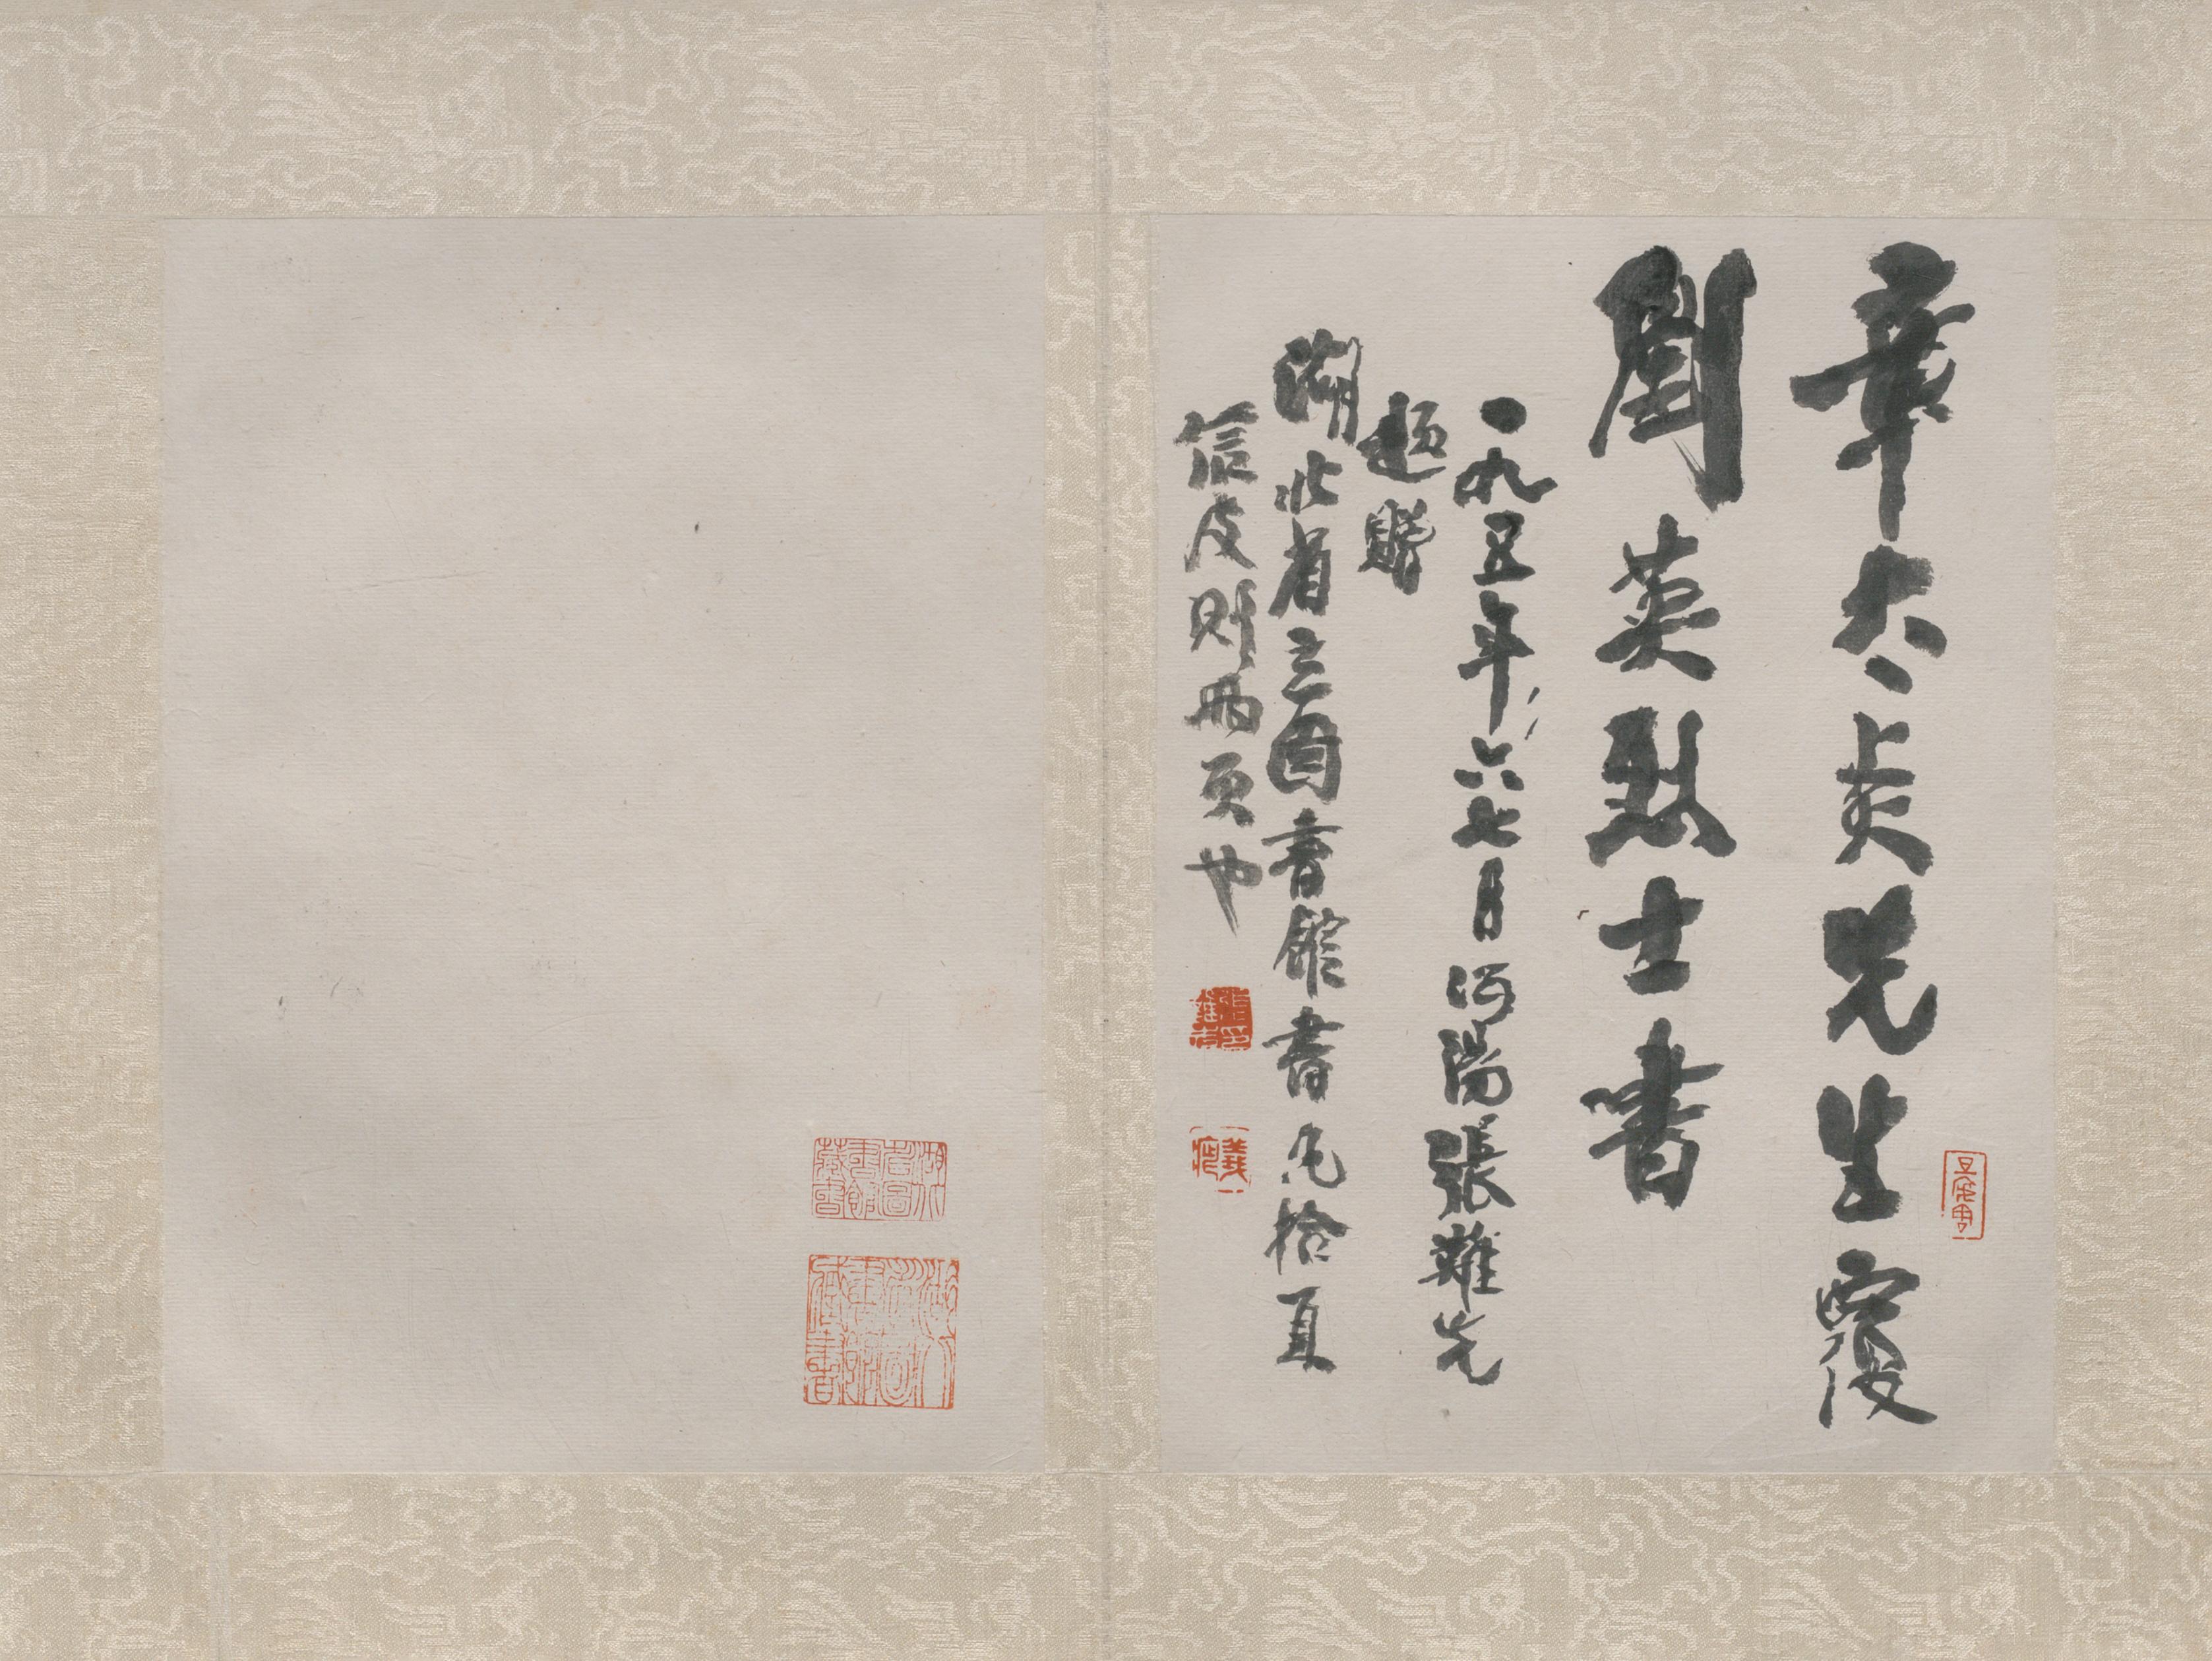 章太炎先生覆
劉英烈士書
一九五五年、六七月沔陽張難先
題贈
湖北省立圖書館書凡拾頁
信皮則兩頁也